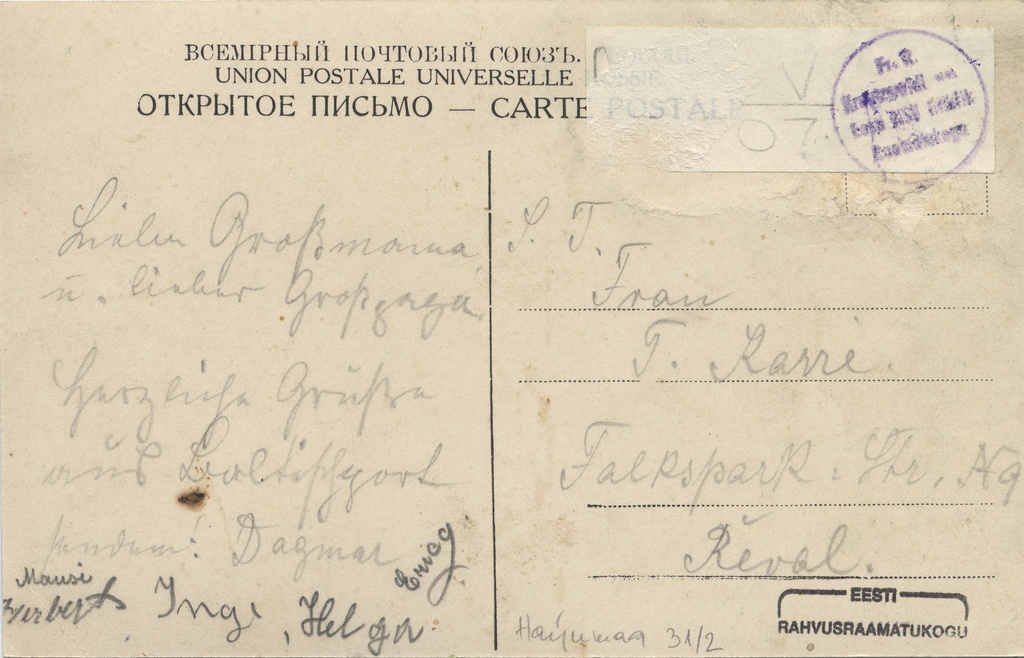 ВСЕМІРНЫЙ ПОЧТОВЫЙ СОЮЗЪ.
UNION POSTALE UNIVERSELLE
ОТКРЫТОЕ ПИСЬМО — CARTE POSTALE
V
07
Fr. R.
Eesti
Liebe Großmama
u. lieber Großpapa,
Herzliche Grüße
aus Baltischport
senden: Dagmar
Mausi
Herbert
Inge, Helga
Erica
S. T.
Frau
T. Karré.
Falkspark. Str. N9
Reval.
31/2
EESTI
RAHVUSRAAMATUKOGU